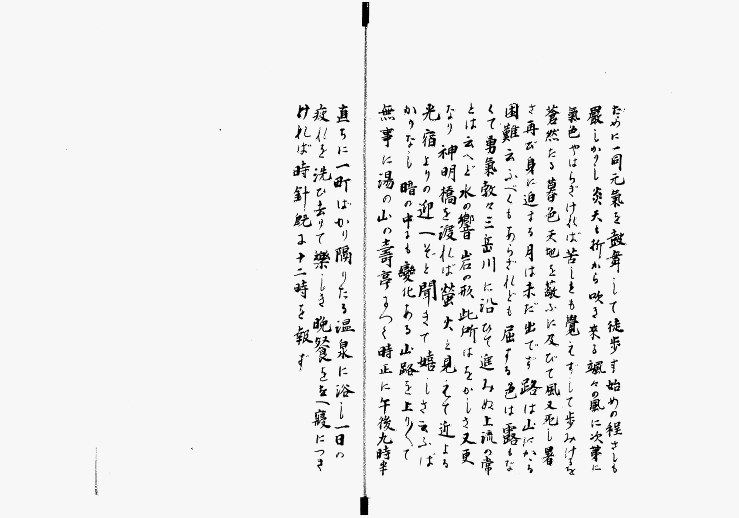 だめに一同元氣を鼓舞して徒歩す始めの程さしも
嚴しかりし炎天も折から吹き来る颯々の風に次第に
氣色やはらぎければ苦しきも覺えずして歩みけるを
蒼然たる暮色天地を蔽ふに及びて風又死し暑
さ再び身に迫する月は未だ出でず路は山にかゝる
困難云ふべくもあらざれども屈する色は露もな
くて勇氣數々三岳川に沿ひて進みぬ上流の常
とは云へど水の響岩の形此所はをかしさ又更
なり神明橋を渡れば螢火と見えて近よる
光宿よりの迎へぞと聞きて嬉しさ云ふば
かりなし暗の中にも變化ある山路を上りて
無事に湯の山の壽亭につく時正に午後九時半
直ちに一町ばかり隔りたる温泉に浴し一日の
疲れを洗ひ去りて樂しき晩餐を了へ寢につき
ければ時針既に十二時を報ず